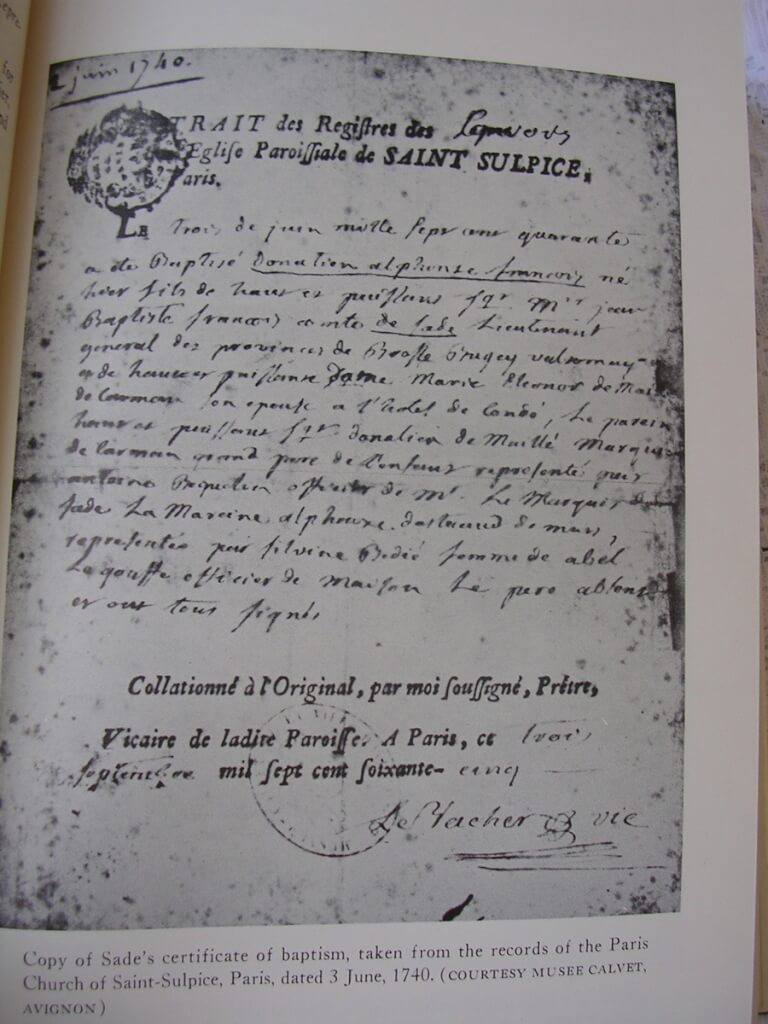 2 juin 1740.
EXTRAIT des Regiſtres des
l'Egliſe Paroiſſiale de SAINT SULPICE,
Paris.
LE trois de juin mille ſept cent quarante
a été Baptisé Donatien alphonse françois né
hier fils de haut et puiſſant ſgr. Mre jean
Baptiste françois comte de Sade Lieutenant
general des provinces de Breſſe Bugey valromay
et de haute et puiſſante Dame Marie Eleonor de Mai
de Carman ſon epouse a l'hotel de Condé, Le parein
haut et puiſſant ſgr. donatien de Maillé Marquis
de Carman grand pere de l'enfant representé par
antoine officier de Mr. Le Marquis de
ſade La Mareine alphonse dastraud de murs,
representée par ſilvine Bedié femme de abel
Le gouffe officier de Maison Le pere absent
et ont tous ſignés
Collationné à l'Original, par moi ſouſſigné, Prêtre,
Vicaire de ladite Paroiſſe. A Paris, ce trois
ſeptembre mil ſept cent ſoixante-cinq
vic
Copy of Sade's certificate of baptism, taken from the records of the Paris
Church of Saint-Sulpice, Paris, dated 3 June, 1740. (COURTESY MUSEE CALVET,
AVIGNON)